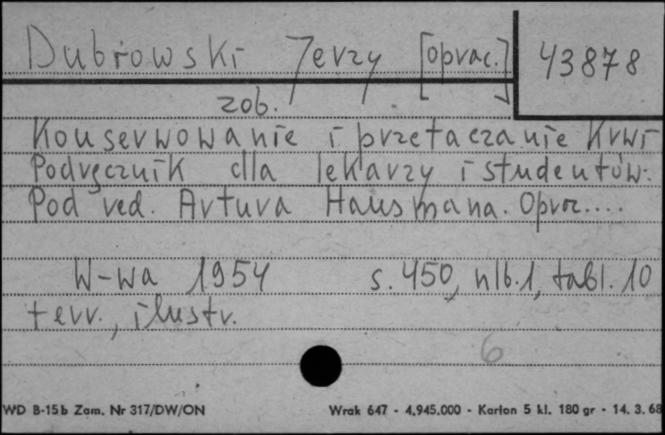 Dubrowski Jerzy [oprac.] 43878
zob.
Konserwowanie i przetaczanie krwi
Podręcznik dla lekarzy i studentów.
Pod red. Artura Hausmana. Oprac....
W-wa 1954 s. 450, nlb. 1, tabl. 10
terr., ilustr.
6
WD B-15b Zam. Nr 317/DW/ON Wrak 647 - 4.945.000 - Karton 5 kl. 180 gr - 14. 3. 68